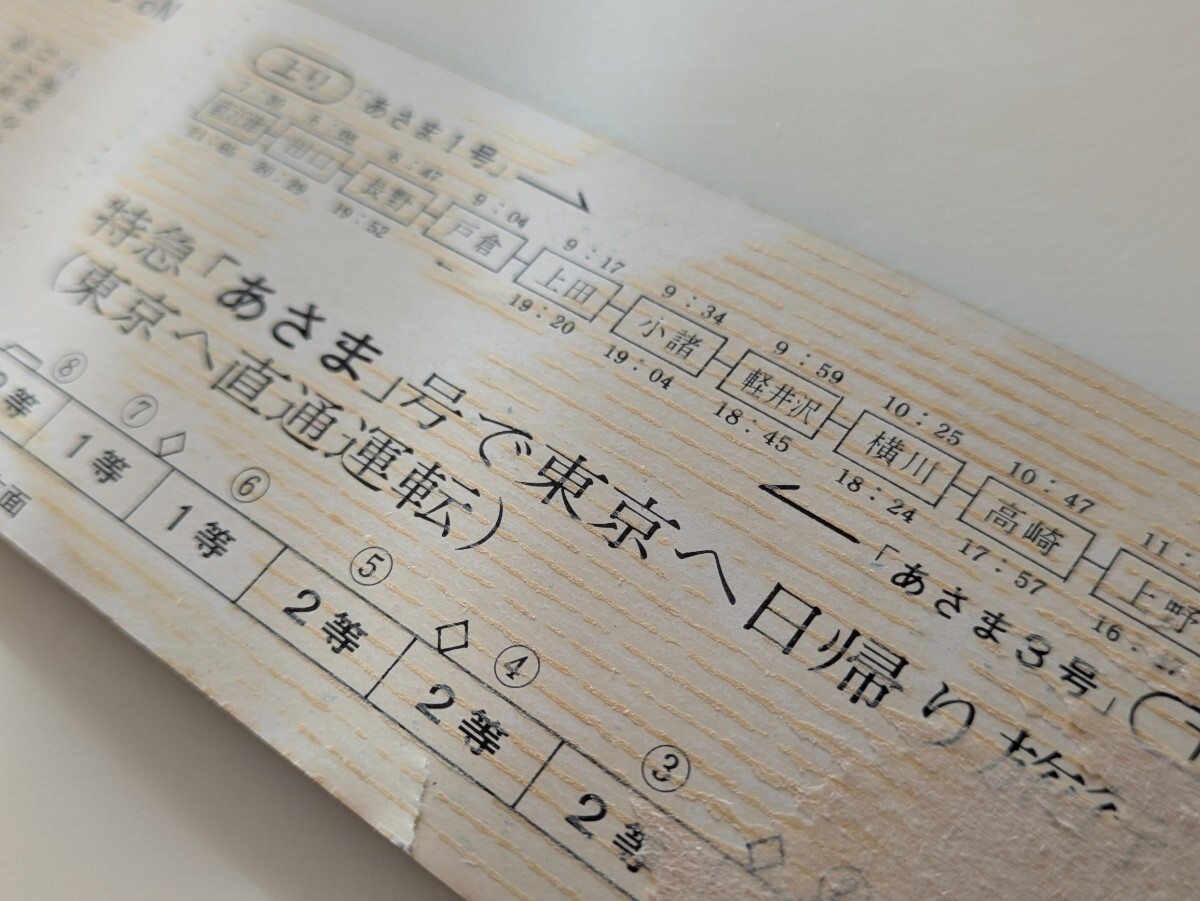 上り 「あさま1号」
8:47 9:04 9:17 9:34 9:59 10:25 10:47 11:
直江津 田口 長野 戸倉 上田 小諸 軽井沢 横川 高崎 上野
19:52 19:20 19:04 18:45 18:24 17:57 16:
「あさま3号」
特急「あさま」号で東京へ日帰り
(東京へ直通運転)
⑧ ⑦ ⑥ ⑤ ④ ③
2等 1等 1等 2等 2等 2等